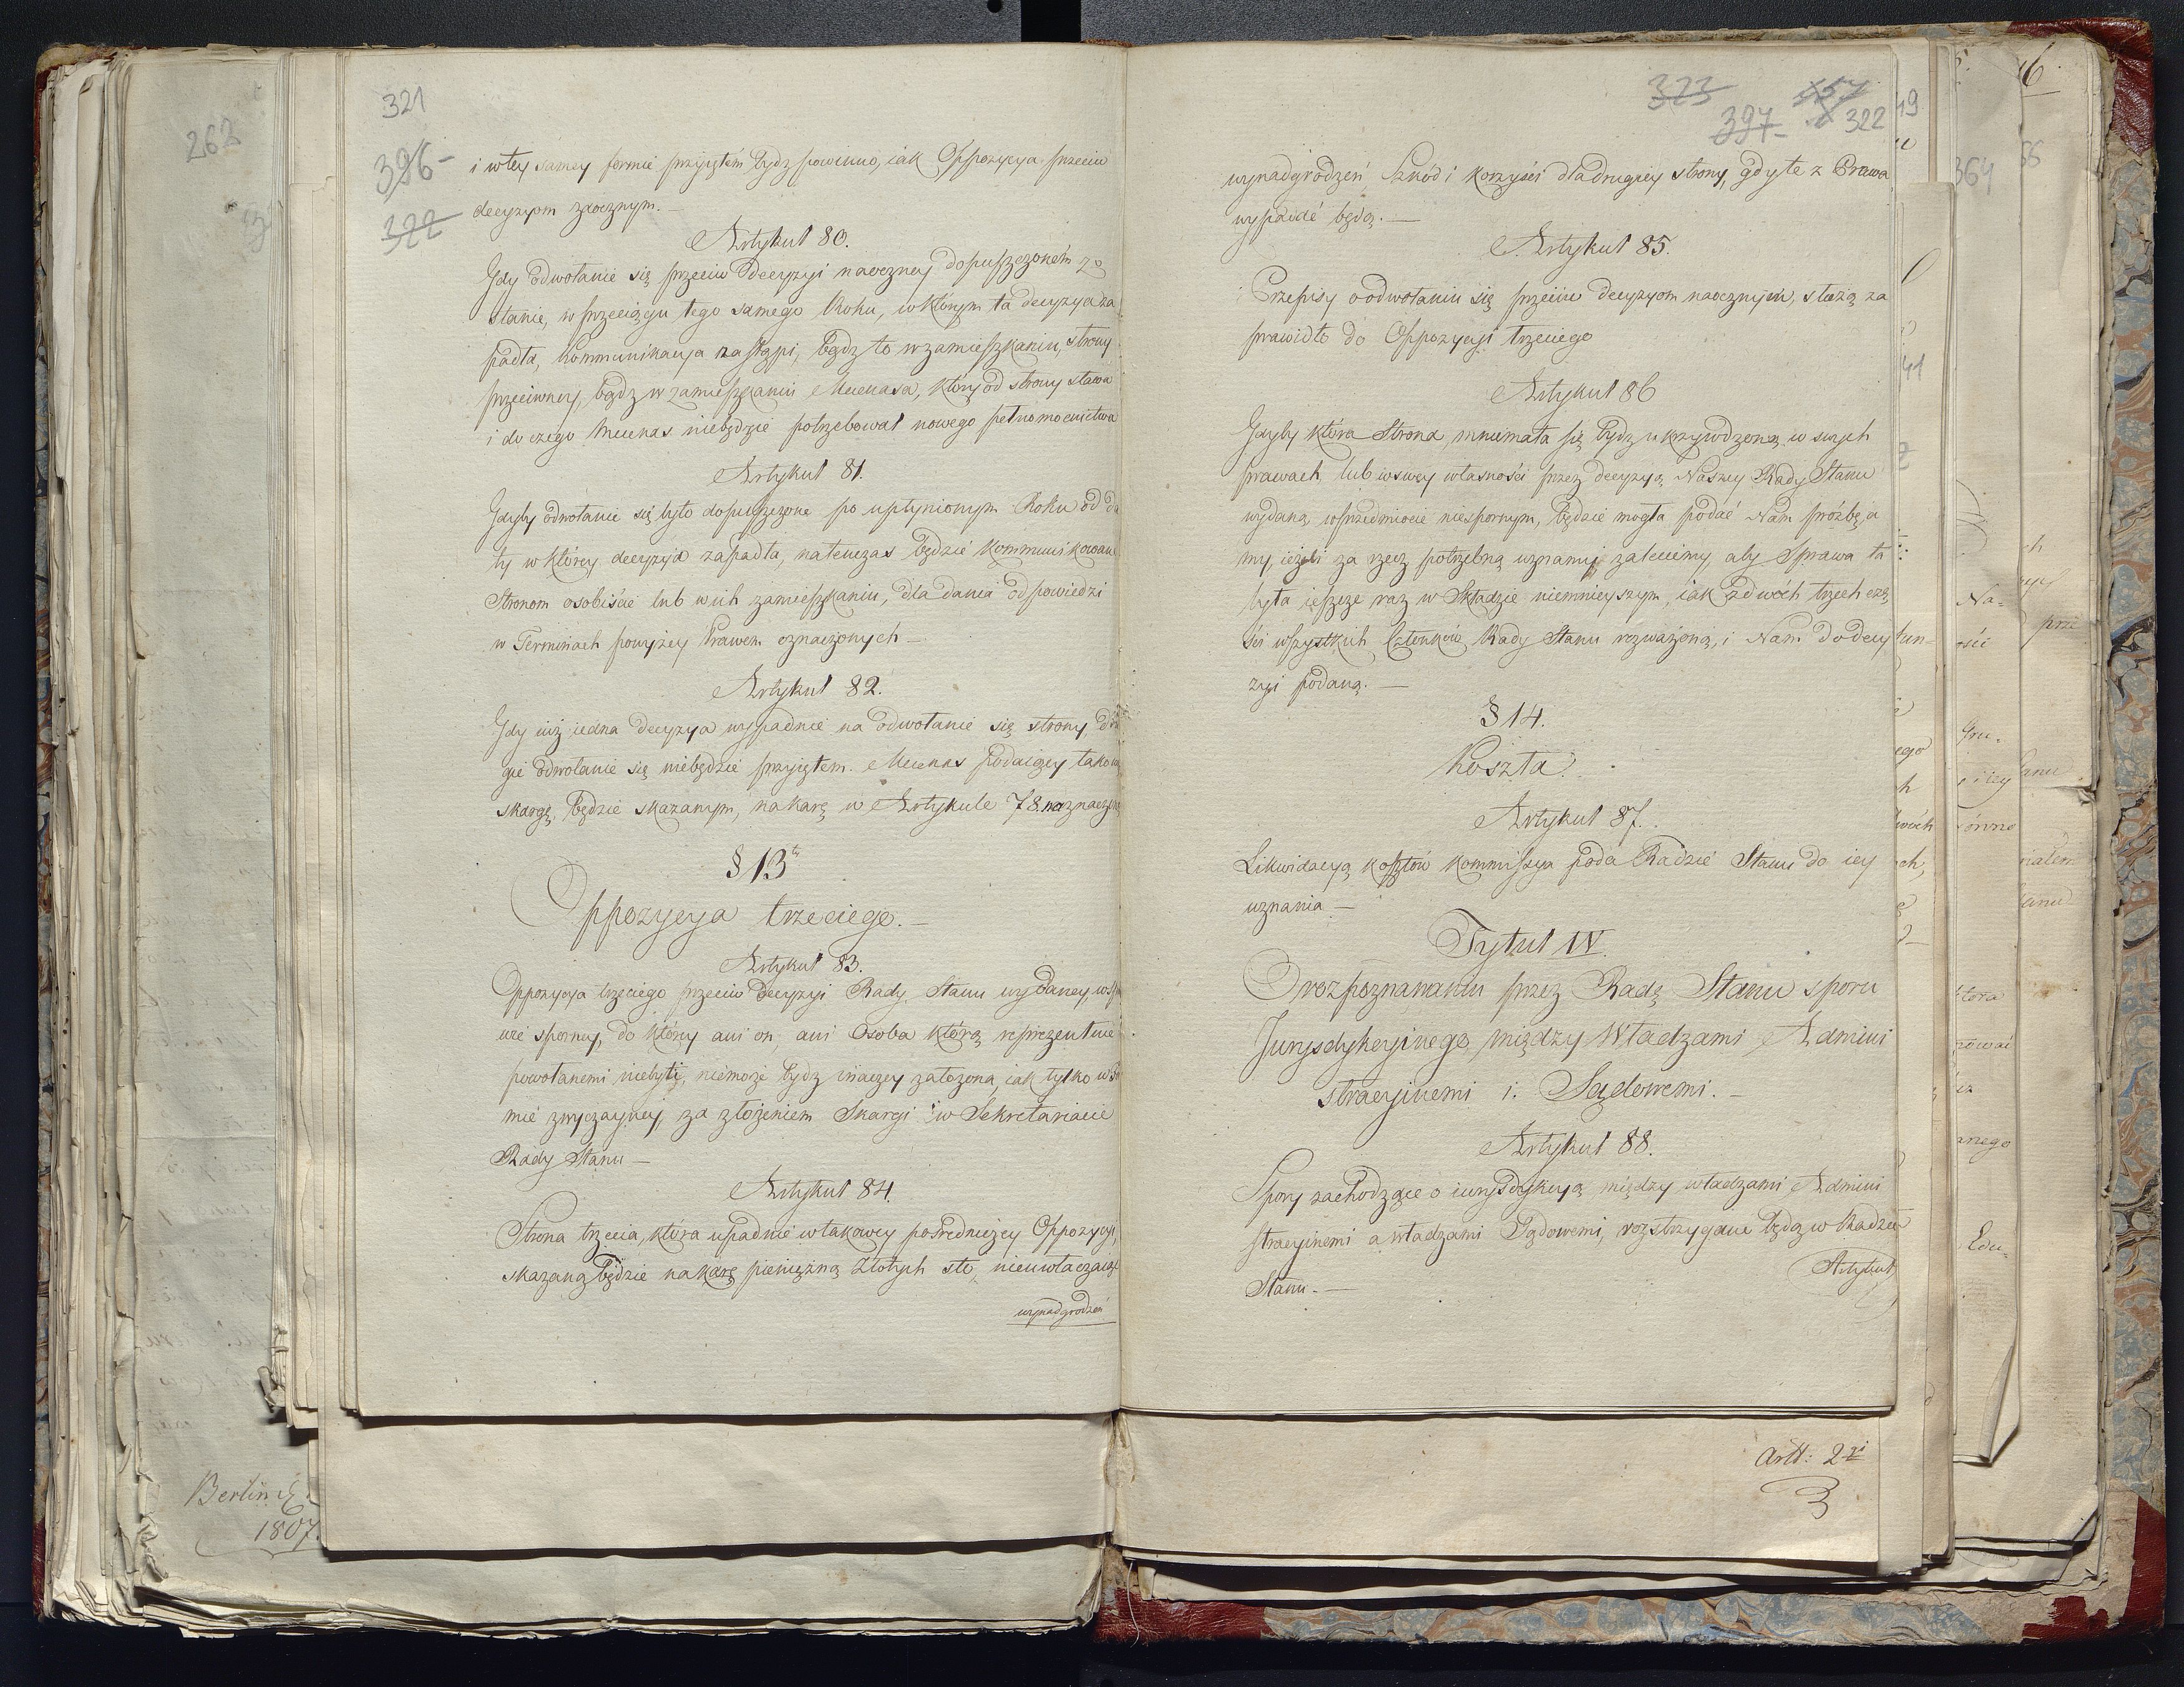 321
396-
322
i w tey samey formie przyjętém bydz powinno, iak Oppozycya przeciw
decyzyom zaocznym.—
Artykuł 80.
Gdy odwołanie się przeciw decyzyi naoczney dopuszczoném zo
stanie, w przeciągu tego samego Roku, w którym ta decyzya za
padła, kommunikacya nastąpi, bądz to w zamieszkaniu, strony
przeciwney, bądz w zamieszkaniu Mecenasa, który od strony stawa
i do czego Mecenas niebędzie potrzebował nowego pełnomocnictwa
Artykuł 81.
Gdyby odwołanie się było dopuszczone po upłynionym Roku od da
ty w którey decyzya zapadła, natenczas będzie kommunikowan
Stronom osobiście lub w ich zamieszkaniu, dla dania odpowiedzi
w Terminach powyżey Prawem oznaczonych—
Artykuł 82.
Gdy iuż iedna decyzya wypadnie na odwołanie się strony dru
gie odwołanie się niebędzie przyiętem. Mecenas podaiący takow
skargę, będzie skazanym, na karę w Artykule 78. naznaczoną
§ 13ty
Oppozycya trzeciego.—
Artykuł 83.
Oppozycya trzeciego przeciw decyzyi Rady Stanu wydaney, w sp
wie sporney, do którey ani on, ani Osoba którą reprezentuie
powołanemi niebyli, niemoże bydz inaczey założona, iak tylko w for
mie zwyczayney, za złożeniem Skargi w Sekretariacie
Rady Stanu—
Artykuł 84.
Strona trzecia, która upadnie w takowey pośredniczey Oppozycyi,
skazaną będzie na karę pieniężną złotych sto, nieuwłaczaiąc
wynadgrodzeń
323
397-
322
wynadgrodzeń Szkód i korzyści dla drugiey strony, gdy te z Prawa
wypadać będą.—
Artykuł 85.
Przepisy o odwołaniu się przeciw decyzyom naocznym, służą za
prawidło do Oppozycyi trzeciego
Artykuł 86
Gdyby która Strona mniemała się bydz ukrzywdzoną w swych
prawach, lub w swey własności przez decyzyą Naszey Rady Stanu
wydaną w przedmiocie niespornym, będzie mogła podać Nam prośbę, a
my, ieżeli za rzecz potrzebną uznamy, zalecimy, aby Sprawa ta
była ieszcze raz w Składzie niemnieyszym, iak z dwóch trzech czę
ści wszystkich Członków Rady Stanu rozważoną, i Nam do decy
zyi podaną.—
§ 14.
Koszta.
Artykuł 87.
Likwidacyą kosztów kommissya poda Radzie Stanu do iey
uznania—
Tytuł IV.
O rozpoznawaniu przez Radę Stanu sporu
Jurysdykcyinego między Władzami Admini
stracyinemi i Sądowemi.—
Artykuł 88.
Spory zachodzące o iurysdykcyą między władzami Admini
stracyinemi a władzami Sądowemi, rozstrzygane będą w Radzie
Stanu.—
Artykuł
262
Berlin
1807.
Artt: 2
3
364